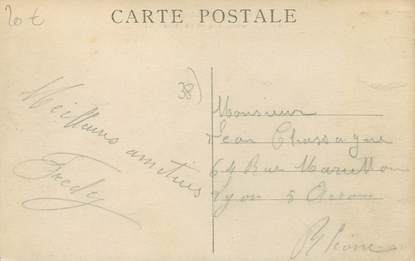 20 €
CARTE POSTALE
38)
Meilleurs amitiés
Fredy
Monsieur
Jean Chassagne
64 Rue
Lyon 5
Rhône